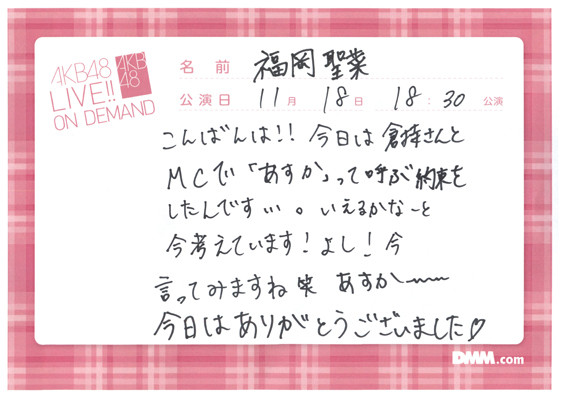 AKB48
LIVE!!
ON DEMAND
AKB
48
名前 福岡聖菜
公演日 11月 18日 18:30 公演
こんばんは!! 今日は倉持さんと
MCで「あすか」って呼ぶ約束を
したんですぃぃ。いえるかなーと
今考えています!よし!今
言ってみますね笑 あすかー〜〜
今日はありがとうございました♡
DMM.com